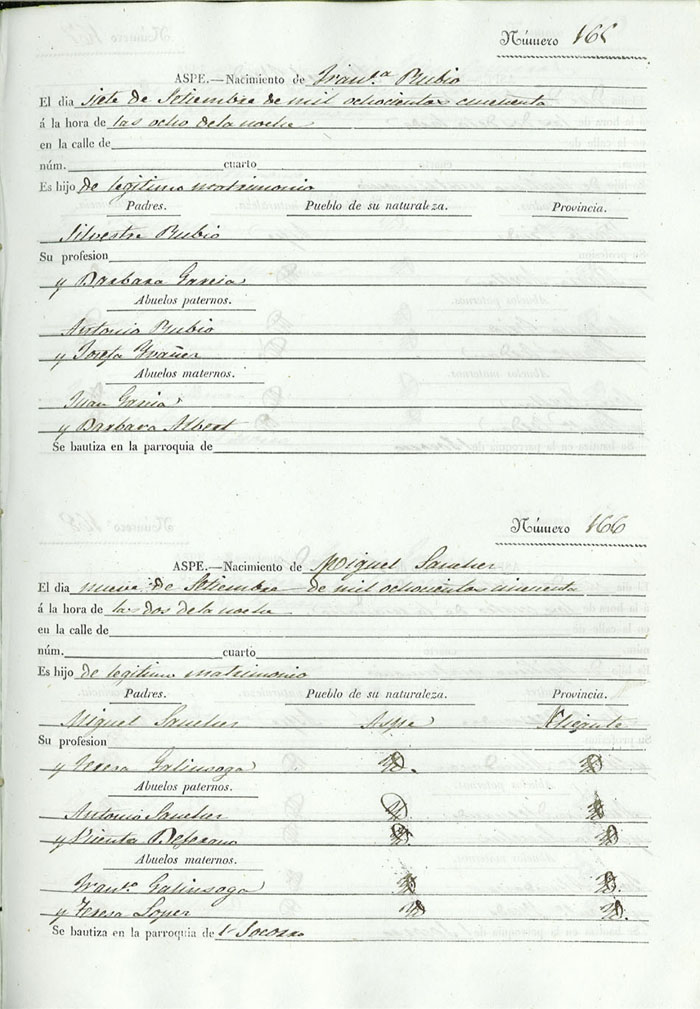 Número 165
ASPE.—Nacimiento de Fran.ca Rubio
El dia siete de Setiembre de mil ochocientos cincuenta
á la hora de las ocho de la noche
en la calle de
núm. cuarto
Es hijo de legitimo matrimonio
Padres. Pueblo de su naturaleza. Provincia.
Silvestre Rubio
Su profesion
y Barbara Garcia
Abuelos paternos.
Antonio Rubio
y Josefa
Abuelos maternos.
Juan Garcia
y Barbara Albert
Se bautiza en la parroquia de
Número 166
ASPE.—Nacimiento de Miguel Sanchez
El dia nueve de Setiembre de mil ochocientos cincuenta
á la hora de las dos de la noche
en la calle de
núm. cuarto
Es hijo de legitimo matrimonio
Padres. Pueblo de su naturaleza. Provincia.
Miguel Sanchez Aspe Alicante
Su profesion
y Teresa Galinsoga
Abuelos paternos.
Antonio Sanchez
y Vicenta
Abuelos maternos.
Fran.co Galinsoga
y Teresa Lopez
Se bautiza en la parroquia de l Socorro